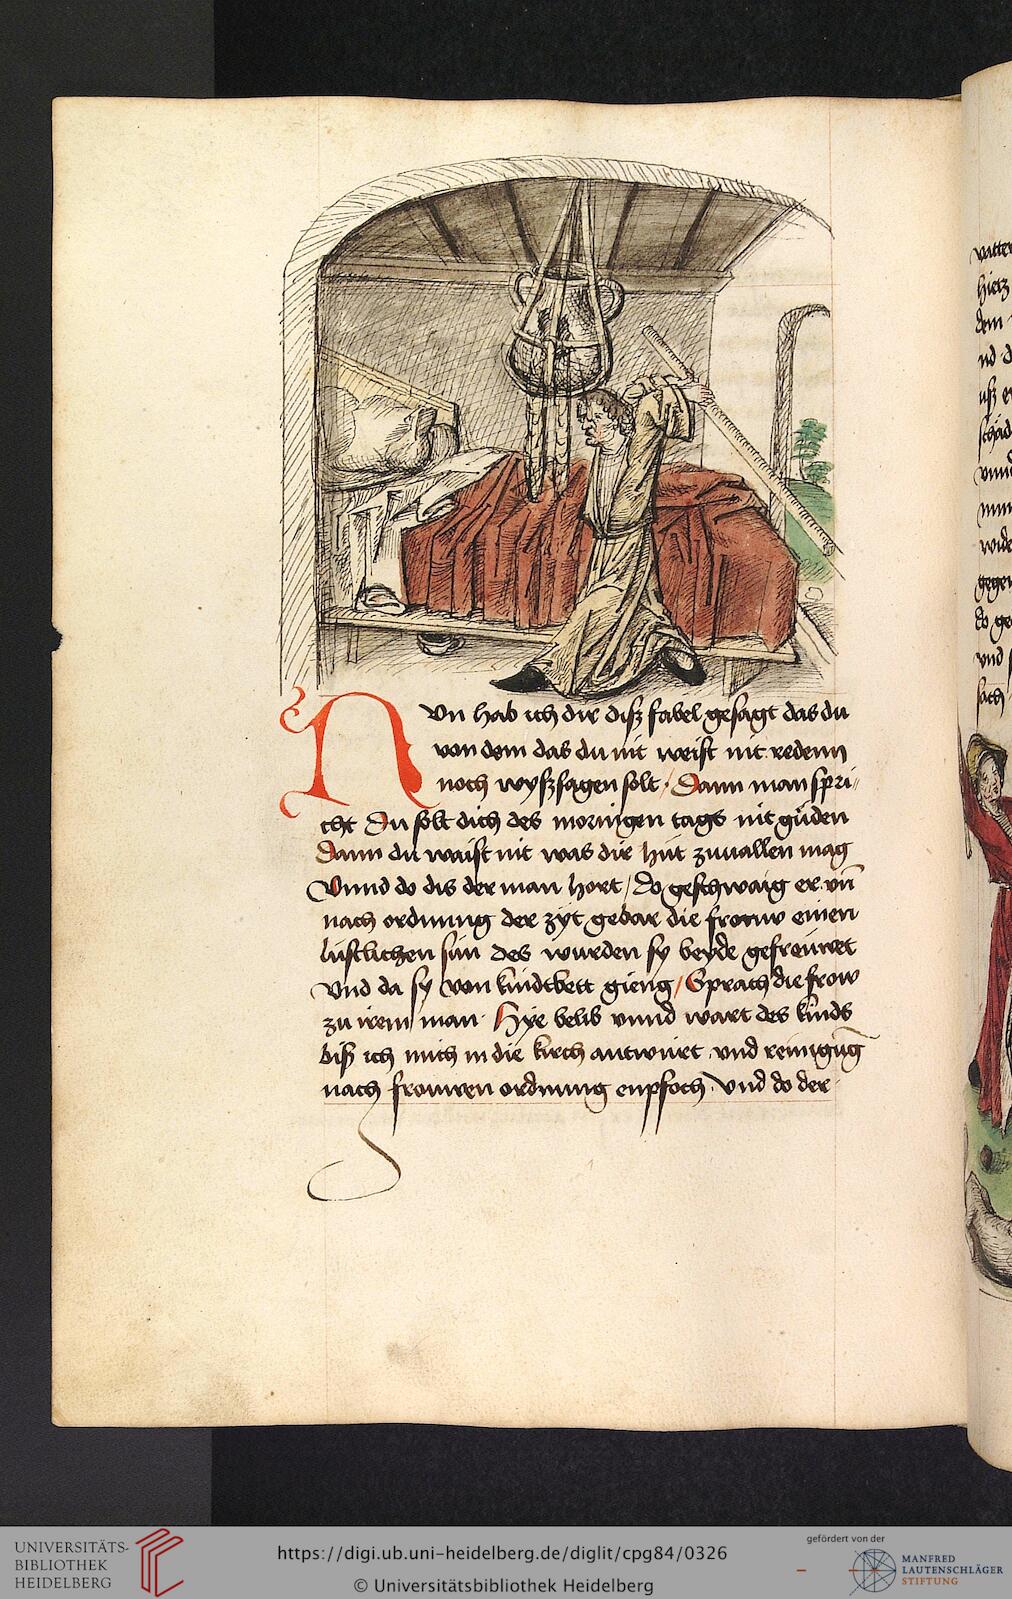 Nun hab ich dir disz fabel gesagt das du
von dem das du nit weist nit redenn
noch wyszsagen solt / Dann man spri-
cht Du solt dich des moringen tags nit güden
Dann du waist nit was dir hüt zuuallen mag
Vnnd do dis der man hort / do geschwaig er vn̄
nach ordnung der zyt gebar die frouw einen
lustlichen sun des wurden sy beyde gefreuwet
Vnd da sy von kindtbett gieng / Sprach die frow
zu irem man · Hye belib vnnd wart des kinds
bisz ich mich in die kirch antwürt vnd reinigūg
nach frouwen ordnung enpfoch · Vnd do der
vatter
hietz
dem
nd
usz
schad
vnnd
wide
gegen
do ge
vnd
sach
UNIVERSITÄTS-
BIBLIOTHEK
HEIDELBERG
https://digi.ub.uni-heidelberg.de/diglit/cpg84/0326
© Universitätsbibliothek Heidelberg
gefördert von der
MANFRED
LAUTENSCHLÄGER
STIFTUNG